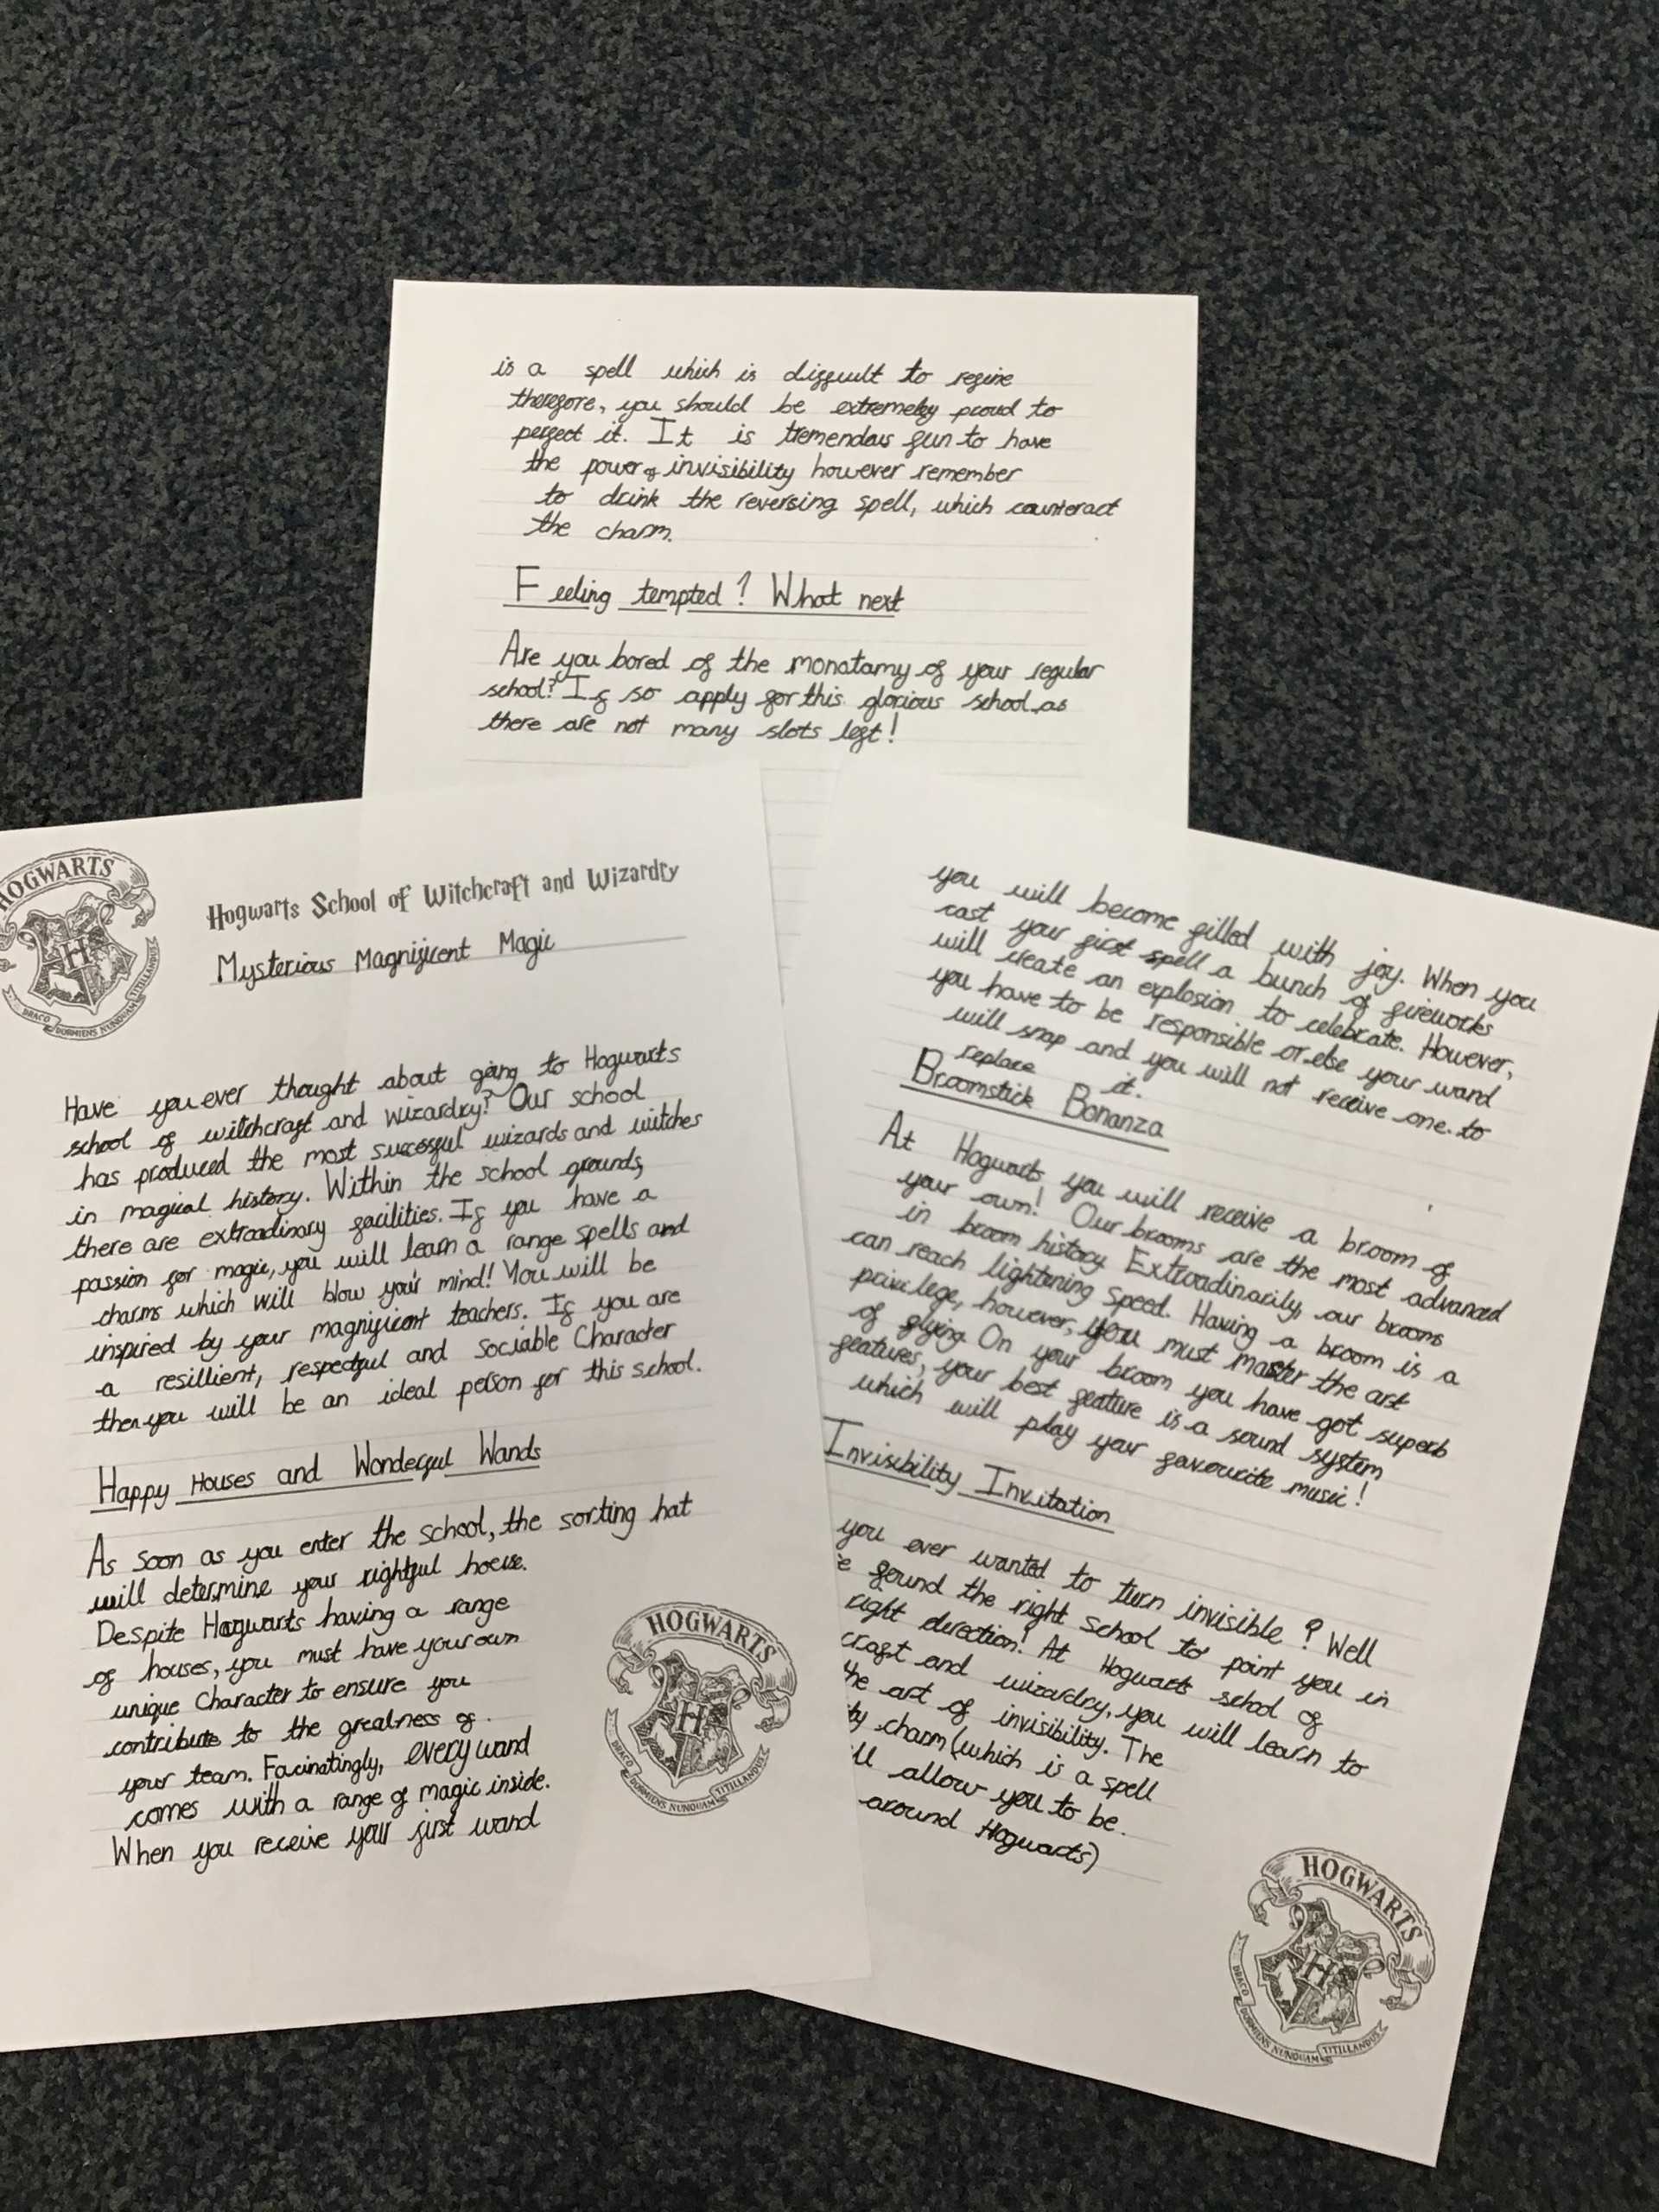 HOGWARTS
DRACO DORMIENS NUNQUAM TITILLANDUS
Hogwarts School of Witchcraft and Wizardry
Mysterious Magnificent Magic
Have you ever thought about going to Hogwarts
school of witchcraft and wizardry? Our school
has produced the most successful wizards and witches
in magical history. Within the school grounds,
there are extraodinary facilities. If you have a
passion for magic, you will learn a range spells and
charms which will blow your mind! You will be
inspired by your magnificent teachers. If you are
a resillient, respectful and sociable Character
then you will be an ideal person for this school.
Happy Houses and Wonderful Wands
As soon as you enter the school, the sorting hat
will determine your rightful house.
Despite Hogwarts having a range
of houses, you must have your own
unique Character to ensure you
contribute to the greatness of
your team. Facinatingly, every wand
comes with a range of magic inside.
When you receive your first wand
HOGWARTS
DRACO DORMIENS NUNQUAM TITILLANDUS
you will become filled with joy. When you
cast your first spell a bunch of fireworks
will create an explosion to celebrate. However,
you have to be responsible or else your wand
will snap and you will not receive one to
replace it.
Broomstick Bonanza
At Hogwarts you will receive a broom of
your own! Our brooms are the most advanced
in broom history. Extroadinarily, our brooms
can reach lightening speed. Having a broom is a
privilege, however, you must master the art
of flying. On your broom you have got superb
features, your best feature is a sound system
which will play your favourite music!
Invisibility Invitation
you ever wanted to turn invisible? Well
e found the right school to point you in
right direction! At Hogwarts school of
craft and wizardry, you will learn to
the art of invisibility. The
ty charm (which is a spell
ll allow you to be
around Hogwarts)
HOGWARTS
DRACO DORMIENS NUNQUAM TITILLANDUS
is a spell which is difficult to refine
therefore, you should be extremeley proud to
perfect it. It is tremendous fun to have
the power of invisibility however remember
to drink the reversing spell, which counteract
the charm.
Feeling tempted? What next
Are you bored of the monotamy of your regular
school? If so apply for this glorious school as
there are not many slots left!